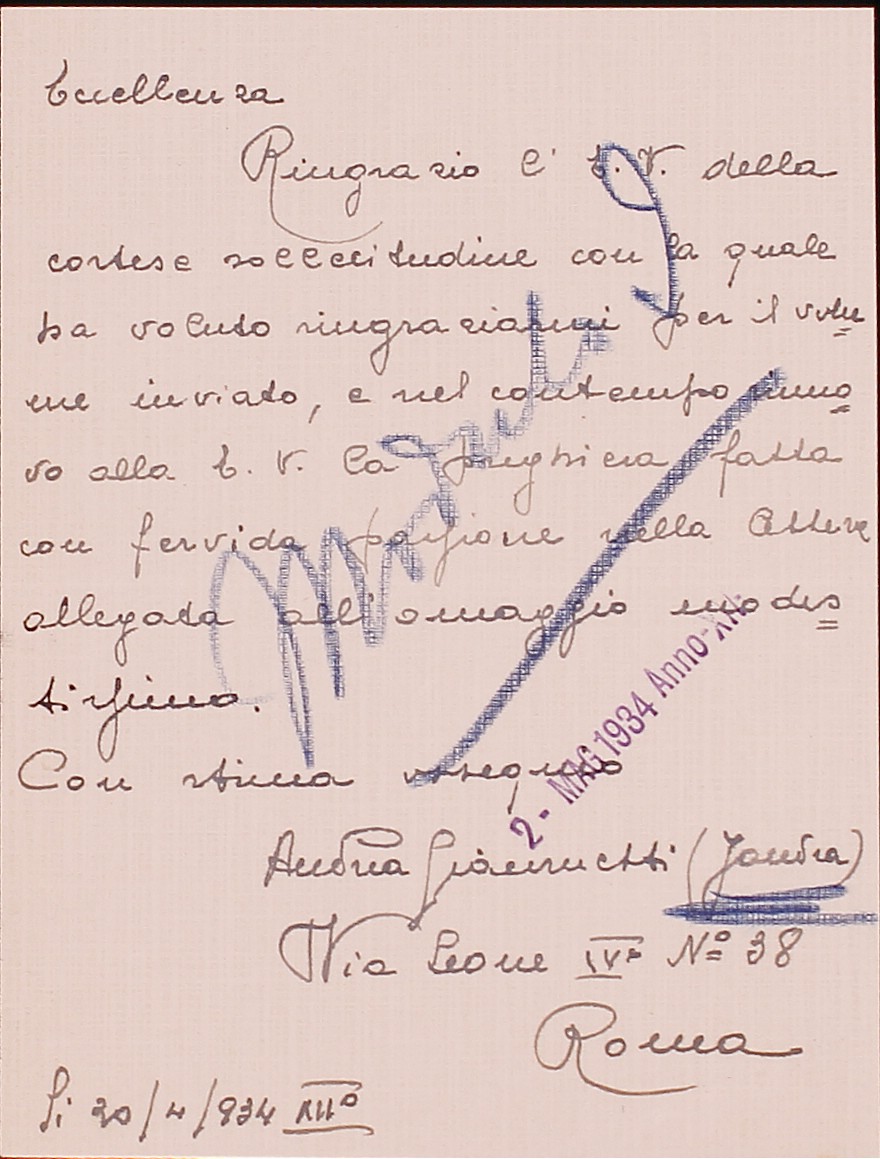 Eccellenza
Ringrazio l'E.V. della
cortese sollecitudine con la quale
ha voluto ringraziarmi per il volu
me inviato, e nel contempo rinno
vo alla E.V. la preghiera fatta
con fervida passione nella lettera
allegata all'omaggio modes
tissimo.
Con stima ossequio
Andrea Giannuetti (Jandra)
Via Leone IV° N° 38
Roma
Li 20/4/934 XII°
2 - MAG 1934 Anno XII